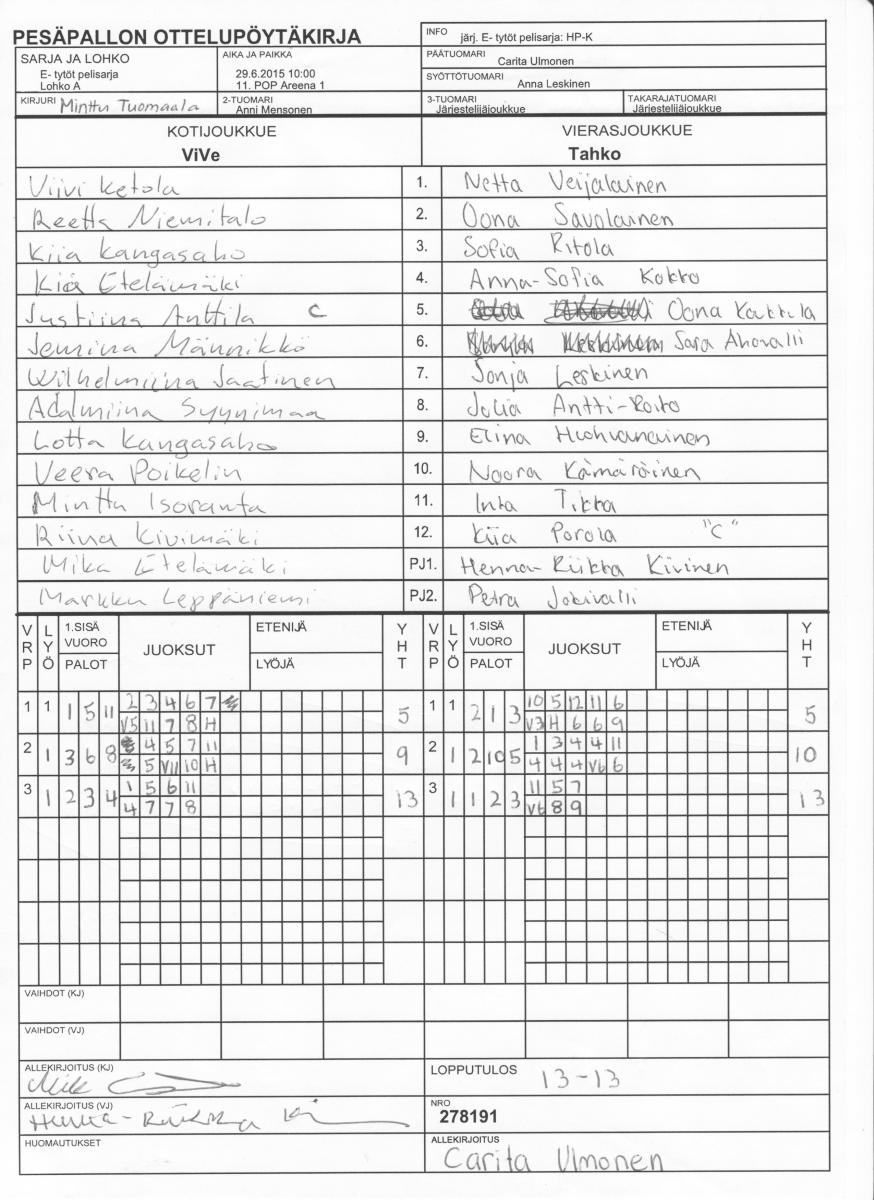 PESÄPALLON OTTELUPÖYTÄKIRJA
INFO järj. E- tytöt pelisarja: HP-K
SARJA JA LOHKO
E- tytöt pelisarja
Lohko A
AIKA JA PAIKKA
29.6.2015 10:00
11. POP Areena 1
PÄÄTUOMARI
Carita Ulmonen
SYÖTTÖTUOMARI
Anna Leskinen
KIRJURI Minttu Tuomaala
2-TUOMARI
Anni Mensonen
3-TUOMARI
Järjestelijäjoukkue
TAKARAJATUOMARI
Järjestelijäjoukkue
KOTIJOUKKUE VIERASJOUKKUE
ViVe Tahko
Viivi Ketola 1. Netta Veijalainen
Reetta Niemitalo 2. Oona Savolainen
Kiia Kangasaho 3. Sofia Ritola
Kiia Etelämäki 4. Anna-Sofia Kokko
Justiina Anttila C 5. Oona Kaukula
Jemina Männikkö 6. Sara Ahovalli
Wilhelmiina Jaatinen 7. Sonja Leskinen
Adalmiina Syynimaa 8. Julia Antti-Roito
Lotta Kangasaho 9. Elina Huohvanainen
Veera Poikelin 10. Noora Kämäräinen
Minttu Isoranta 11. Inka Tikka
Riina Kivimäki 12. Kiia Porola "C"
Mika Etelämäki PJ1. Henna-Riikka Kivinen
Markku Leppäniemi PJ2. Petra Jokivalli
VRP LYÖ 1.SISÄ VUORO PALOT JUOKSUT ETENIJÄ LYÖJÄ YHT VRP LYÖ 1.SISÄ VUORO PALOT JUOKSUT ETENIJÄ LYÖJÄ YHT
1 1 1 5 11 2 3 4 6 7 5 1 1 2 1 3 10 5 12 11 6 5
V5 11 7 8 H V3 H 6 6 9
2 1 3 6 8 4 5 7 11 9 2 1 2 10 5 1 3 4 4 11 10
5 V11 10 H 4 4 4 V6 6
3 1 2 3 4 1 5 6 11 13 3 1 1 2 3 11 5 7 13
4 7 7 8 V6 8 9
VAIHDOT (KJ)
VAIHDOT (VJ)
ALLEKIRJOITUS (KJ)
LOPPUTULOS 13-13
ALLEKIRJOITUS (VJ)
NRO
278191
HUOMAUTUKSET
ALLEKIRJOITUS
Carita Ulmonen